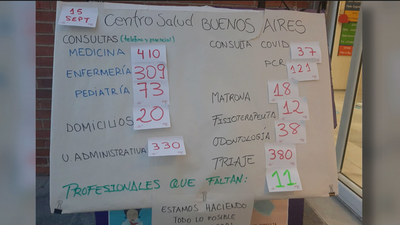 15
SEPT.
Centro Salud BUENOS AIRES
CONSULTAS (telefónica y presencial)
MEDICINA 410
ENFERMERÍA 309
PEDIATRÍA 73
DOMICILIOS 20
U. ADMINISTRATIVA 330
CONSULTA COVID 37
PCR 121
MATRONA 18
FISIOTERAPEUTA 12
ODONTOLOGÍA 38
TRIAJE 380
PROFESIONALES QUE FALTAN: 11
ESTAMOS HACIENDO
TODO LO POSIBLE